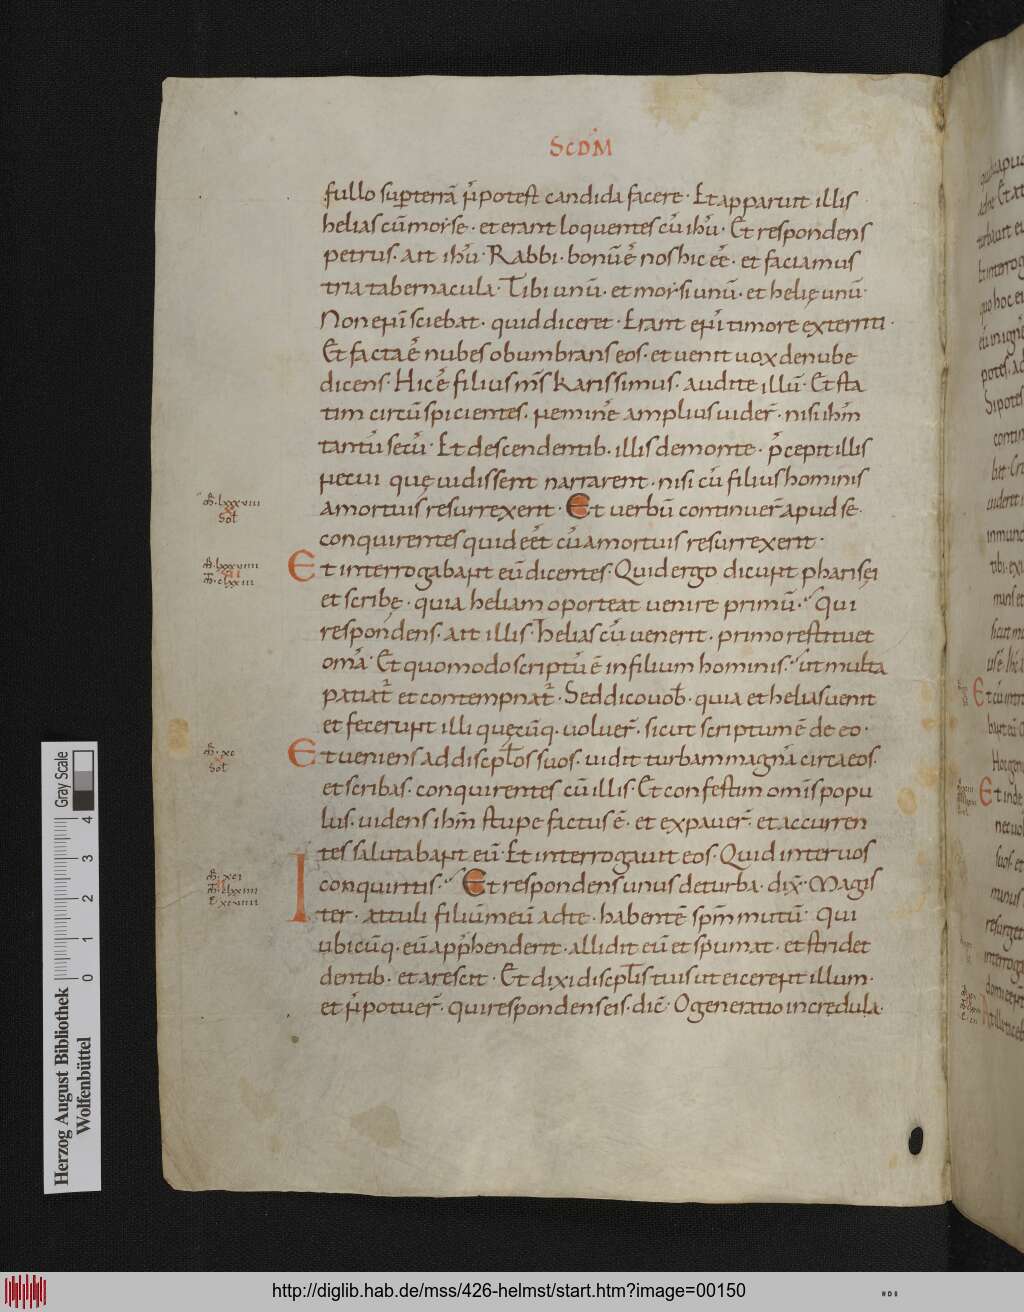 SCDM
fullo sup terrā n̄ potest candida facere · Et apparuit illis
helias cū moyse · et erant loquentes cū ihū · Et respondens
petrus · ait ihū · Rabbi · bonū ē nos hic eē · et faciamus
tria tabernacula · Tibi unū · et moysi unū · et helię unū ·
Non eni sciebat · quid diceret · Erant eni timore exterriti ·
Et facta ē nubes obumbrans eos · et uenit uox de nube
dicens · Hic ē filius m̄s karissimus · audite illū · Et sta
tim circū spicientes · neminē amplius uider̄ · nisi ihm̄
tantū secū · Et descendentib· illis de monte · p̄cepit illis
ne cui quę uidissent narrarent · nisi cū filius hominis
a mortuis resurrexerit · Et uerbū continuer̄ apud se ·
conquirentes quid eēt cū a mortuis resurrexerit ·
Et interrogabant eū dicentes · Quid ergo dicunt pharisęi
et scribę · quia heliam oporteat uenire primū · Qui
respondens · ait illis · Helias cū uenerit · primo restituet
om̄a · Et quomodo scriptū ē in filium hominis · ut multa
patiat̄ et contempnat̄ · Sed dico uob̄ · quia et helias uenit
et fecerunt illi quęcūq· uoluer̄ · sicut scriptum ē de eo ·
Et ueniens ad discpl̄os suos · uidit turbam magnā circa eos ·
et scribas · conquirentes cū illis · Et confestim omīs popu
lus · uidens ihm̄ stupe factus ē · et expauer̄ · et accurren
tes salutabant eū · Et interrogauit eos · Quid inter uos
conquiritis · Et respondens unus de turba · dix̄ · Magis
ter · attuli filiū meū ad te · habentē spm̄ mutū · Qui
ubicūq· eū app̄henderit · allidit eū et spumat · et stridet
dentib· et arescit · Et dixi discpl̄is tuis ut eicerent illum ·
et n̄ potuer̄ · qui respondens eis · dic̄ · O generatio incredula ·
M̄ · lxxxviii
X
Sol
M̄ · lxxxviiii
VI
M̄T · clxxiii
M̄ · xc
X
Sol
M̄ · xci
II
M̄T · clxxiiii
L · xcviiii
Herzog August Bibliothek
Wolfenbüttel
0 1 2 3 4
Gray Scale
http://diglib.hab.de/mss/426-helmst/start.htm?image=00150